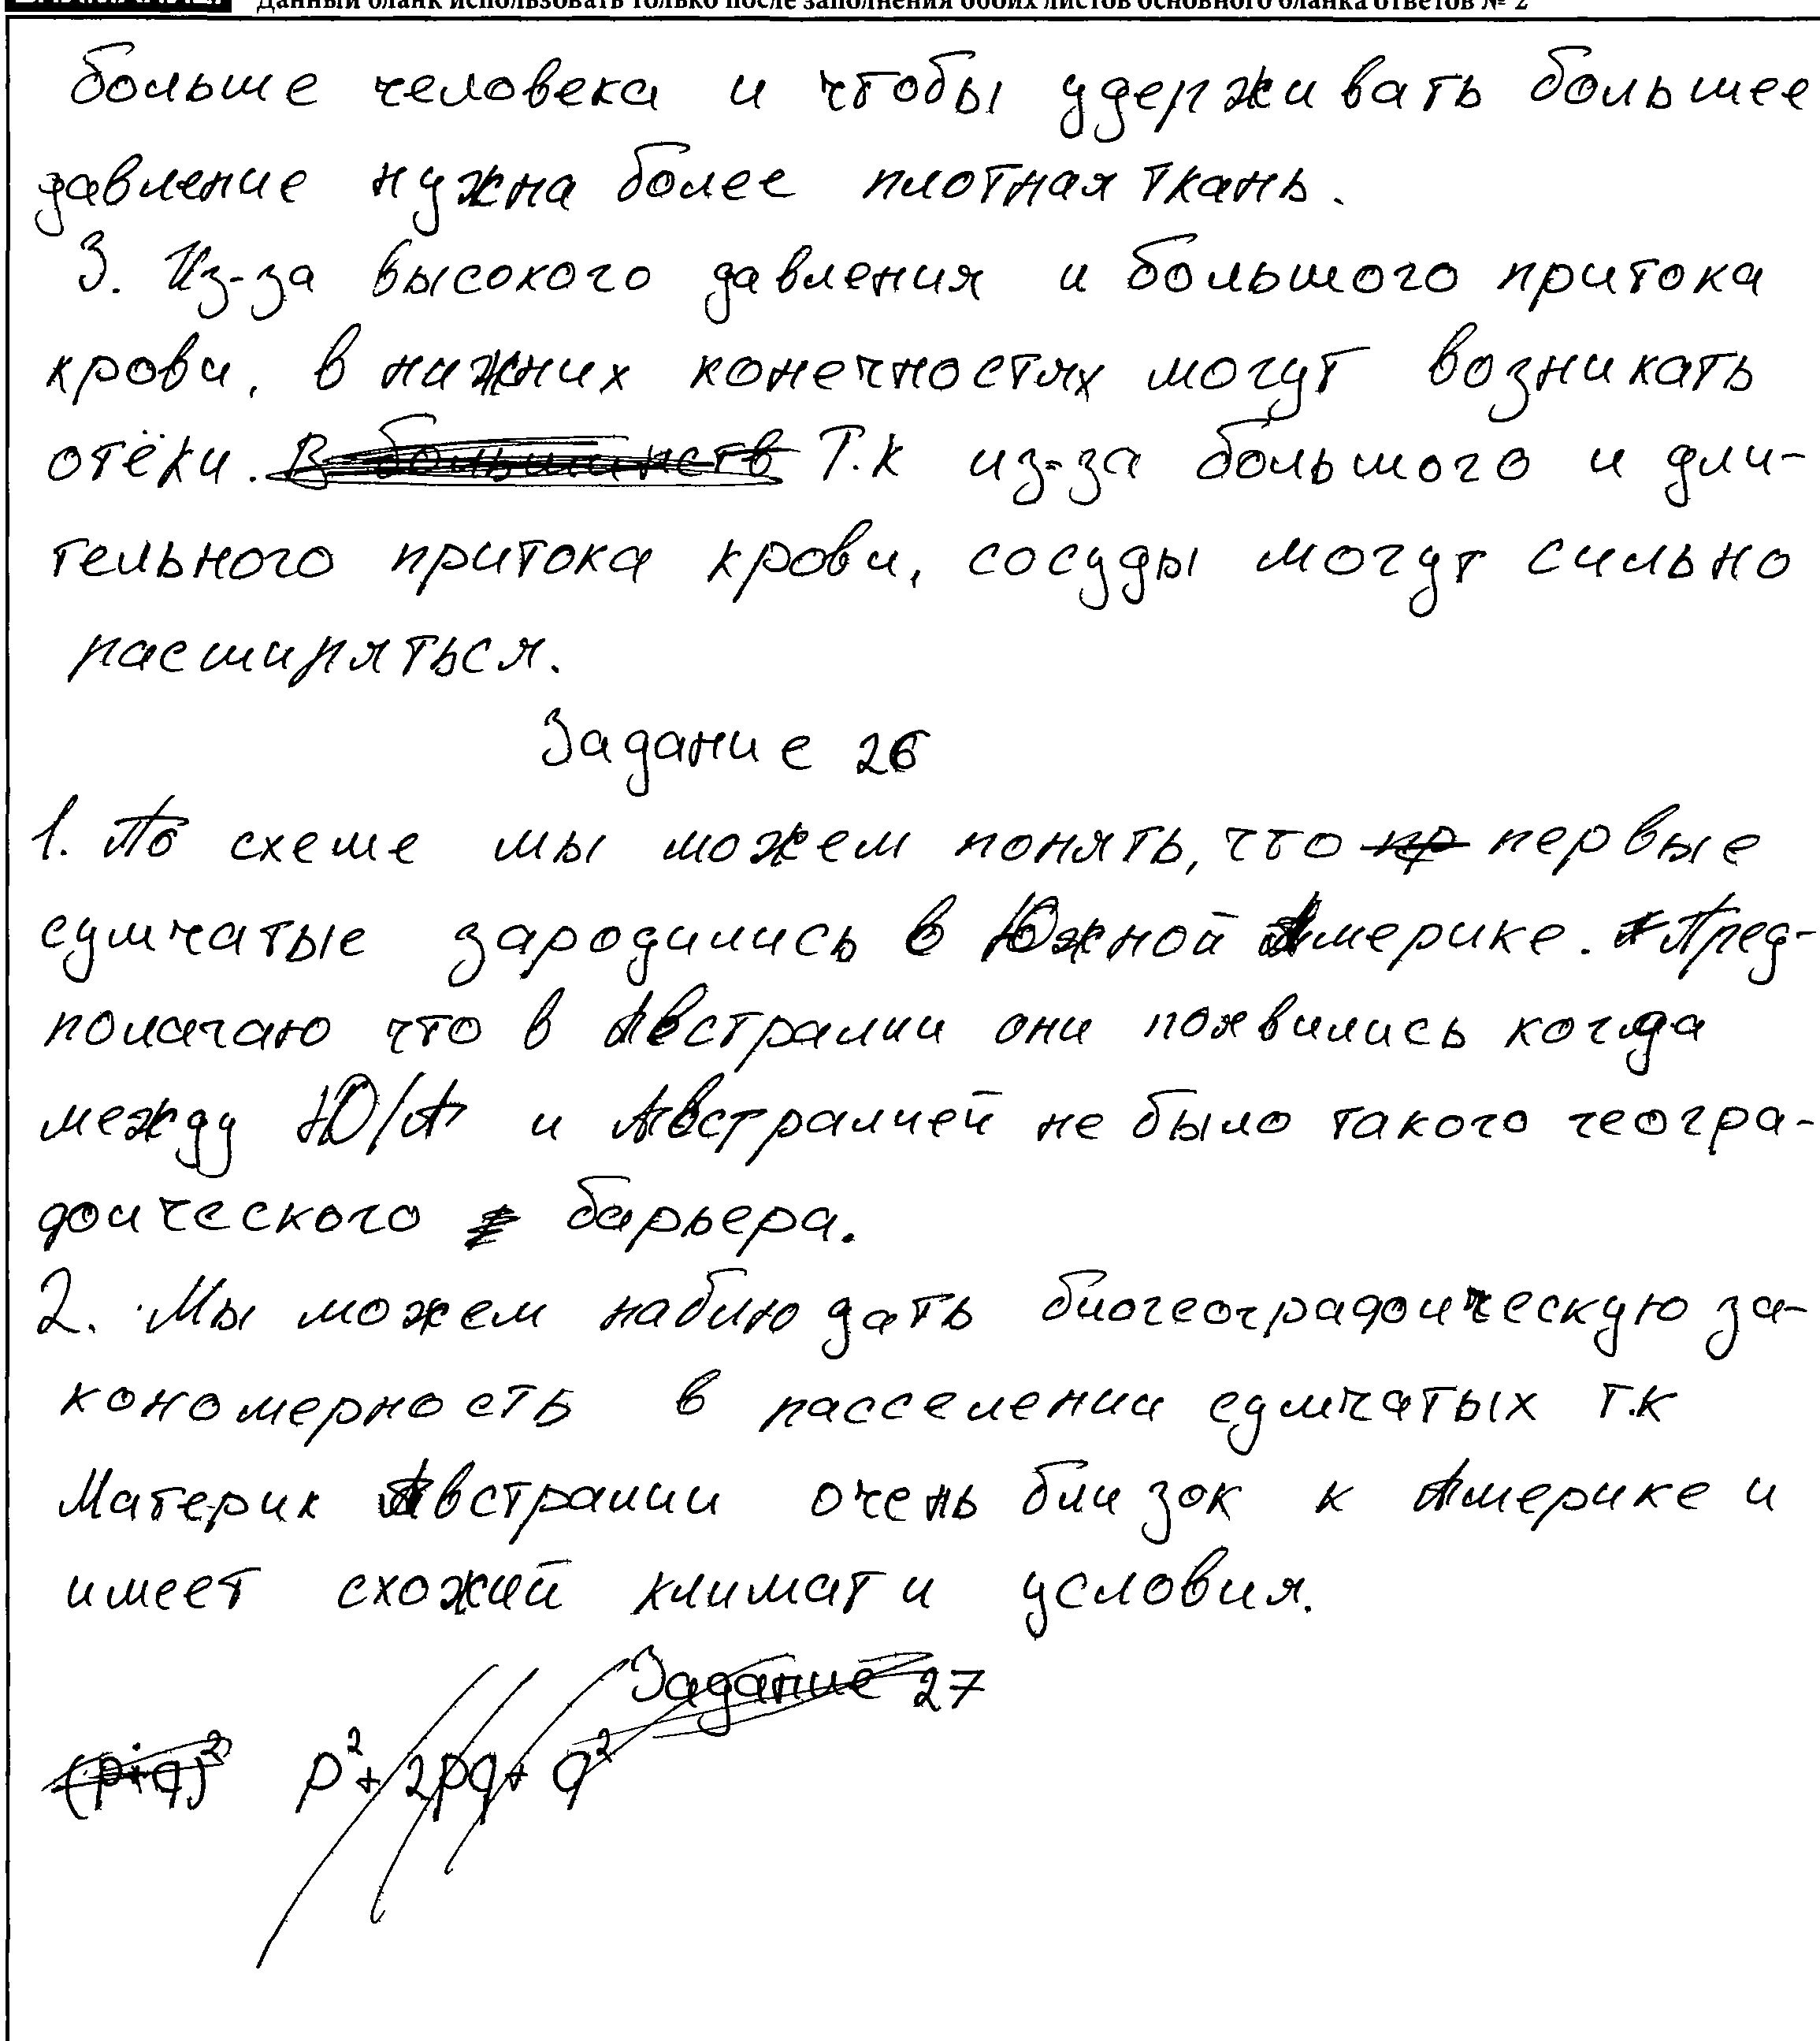 Данный бланк использовать только после заполнения обоих листов основного бланка ответов № 2
больше человека и чтобы удерживать большее
давление нужна более плотная ткань.
3. Из-за высокого давления и большого притока
крови, в нижних конечностях могут возникать
отёки. В большинств Т.к из-за большого и дли-
тельного притока крови, сосуды могут сильно
расширяться.
Задание 26
1. По схеме мы можем понять, что пр первые
сумчатые зародились в Южной Америке. Пред-
полагаю что в Австралии они появились когда
между Ю/А и Австралией не было такого геогра-
фического барьера.
2. Мы можем наблюдать биогеографическую за-
кономерность в расселении сумчатых т.к
Материк Австралии очень близок к Америке и
имеет схожий климат и условия.
Задание 27
(p+q)² p² + 2pq + q²